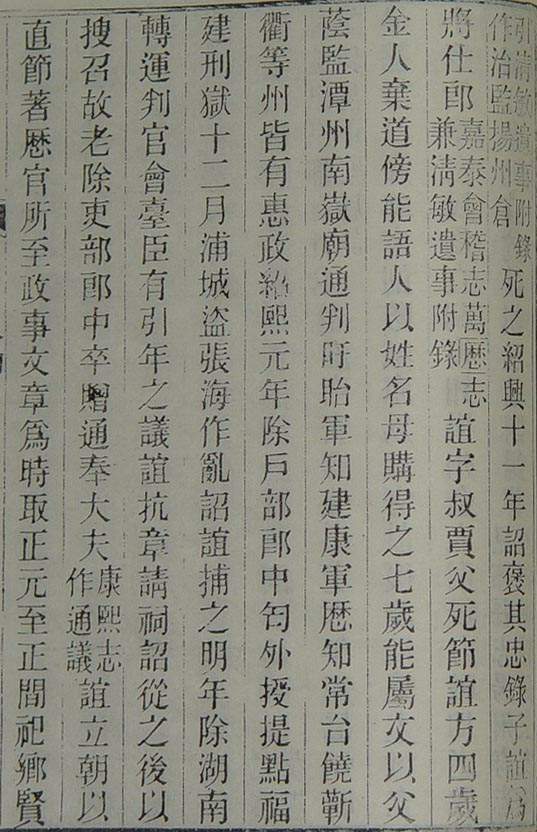 引淸敏遺事附錄作治監揚州倉死之紹興十一年詔褒其忠錄子誼爲
將仕郎嘉泰會稽志萬歷志兼淸敏遺事附錄誼字叔賈父死節誼方四歲
金人棄道傍能語人以姓名母購得之七歲能屬文以父
蔭監潭州南嶽廟通判盱眙軍知建康軍歷知常台饒蘄
衢等州皆有惠政紹熙元年除戶部郎中匄外授提點福
建刑獄十二月浦城盜張海作亂詔誼捕之明年除湖南
轉運判官會臺臣有引年之議誼抗章請祠詔從之後以
搜召故老除吏部郎中卒贈通奉大夫康熙志作通議誼立朝以
直節著歷官所至政事文章爲時取正元至正間祀鄉賢